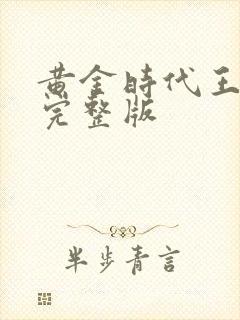 黄金時代王
完整版
半步青言